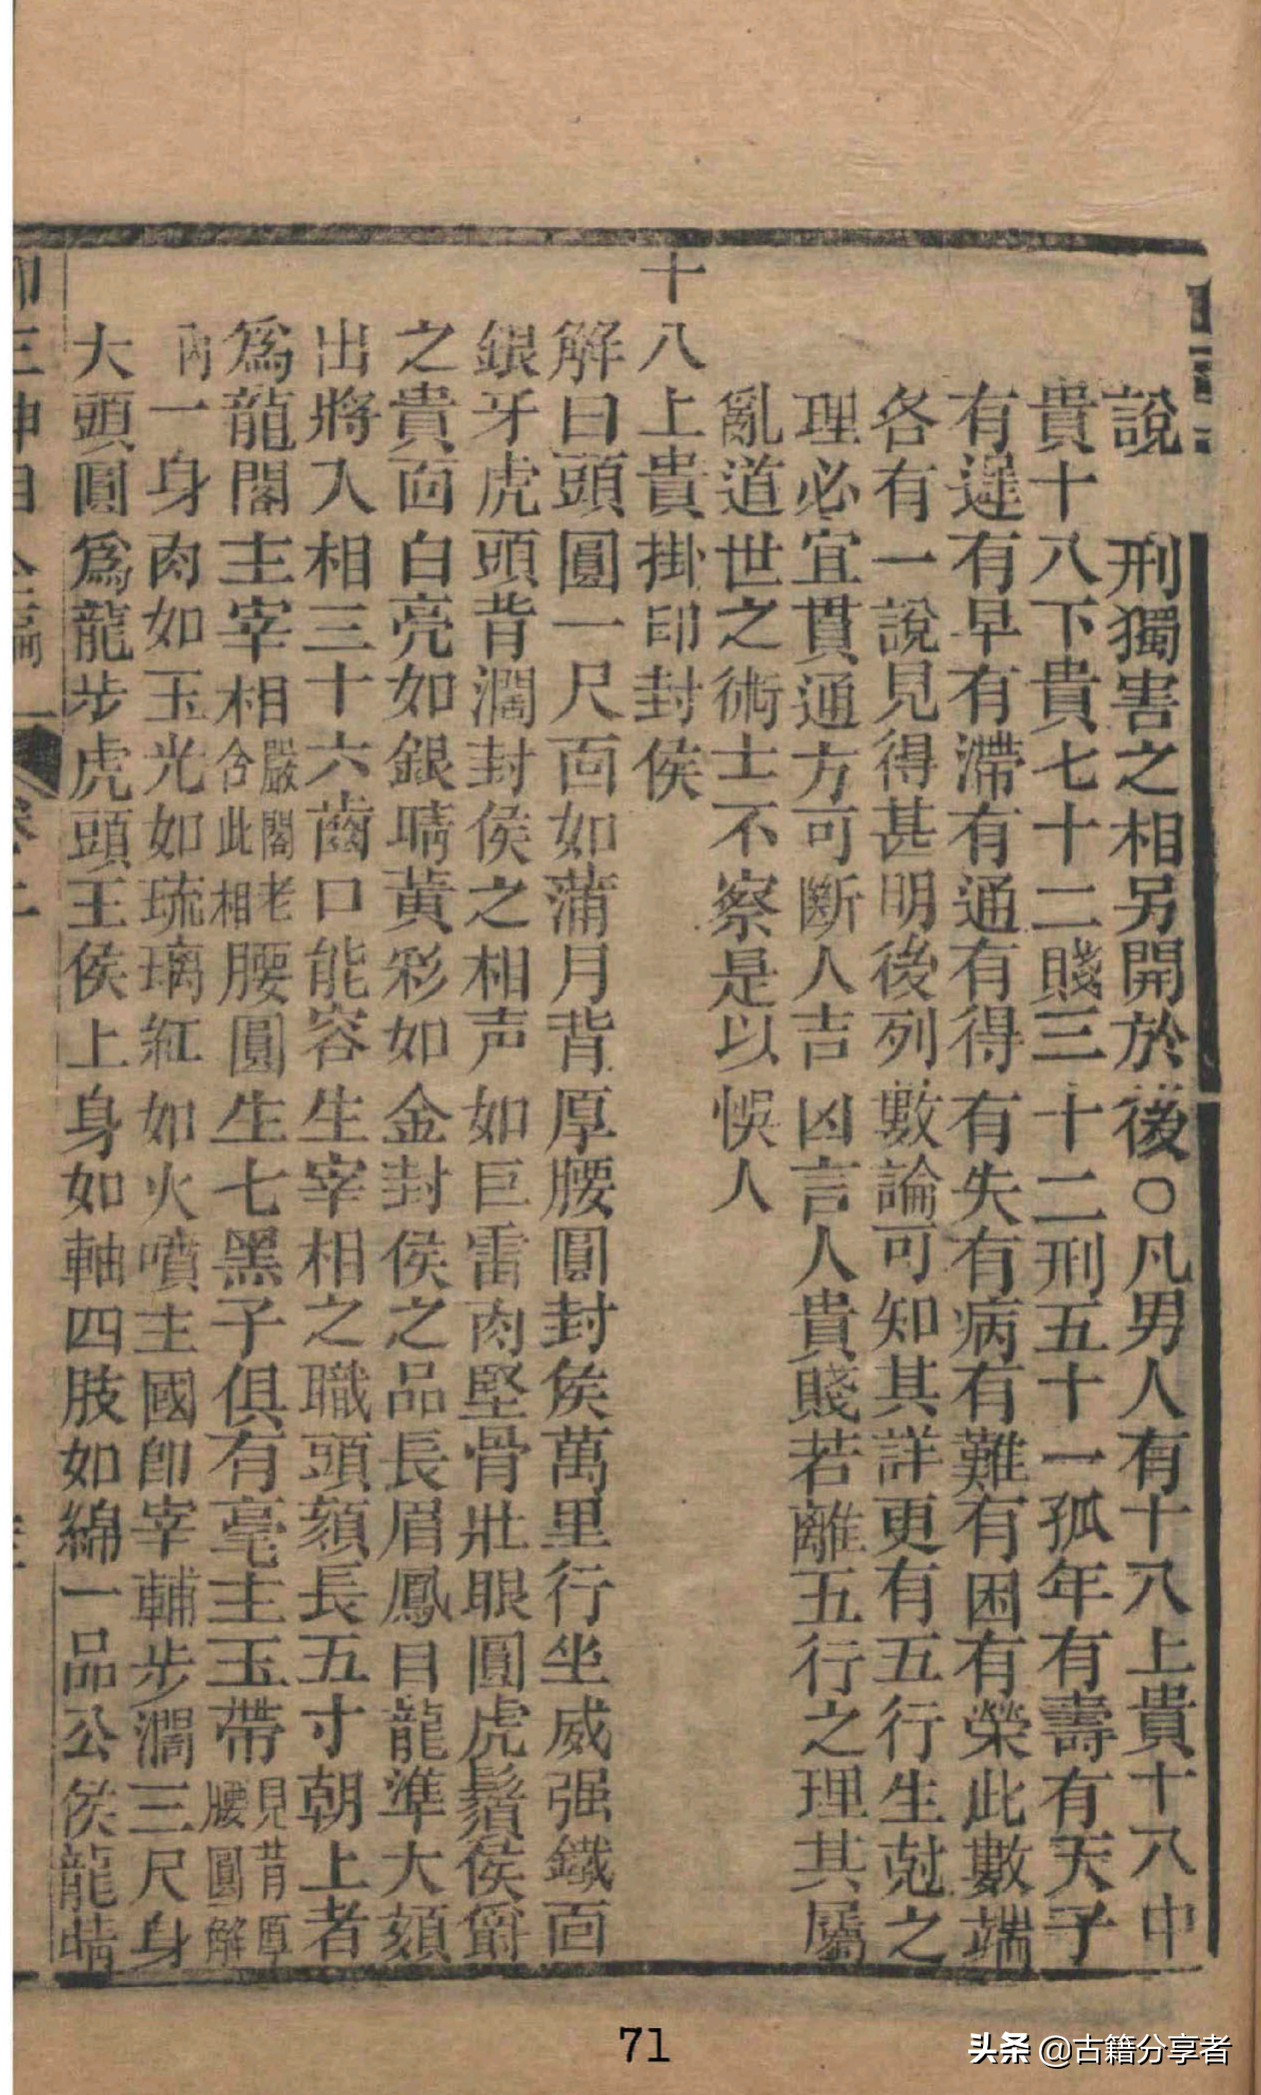 說　刑獨害之相另開於後○凡男人有十八上貴十八中
貴十八下貴七十二賤三十二刑五十一孤年有壽有夭子
有遲有早有滯有通有得有失有病有難有困有榮此數端
各有一說見得甚明後列數論可知其詳更有五行生尅之
理必宜貫通方可斷人吉凶言人貴賤若離五行之理其屬
亂道世之術士不察是以悞人
十八上貴掛印封侯
解曰頭圓一尺面如蒲月背厚腰圓封侯萬里行坐威强鐵面
銀牙虎頭背濶封侯之相声如巨雷肉堅骨壯眼圓虎鬚侯爵
之貴面白亮如銀睛黃彩如金封侯之品長眉鳳目龍準大額
出將入相三十六齒口能容生宰相之職頭額長五寸朝上者
為龍閣主宰相嚴閣老合此相腰圓生七黑子俱有毫主玉帶見背厚腰圓解
內一身肉如玉光如琉璃紅如火噴主國卽宰輔步濶三尺身
大頭圓為龍步虎頭王侯上身如軸四肢如綿一品公侯龍睛
71
头条 @古籍分享者